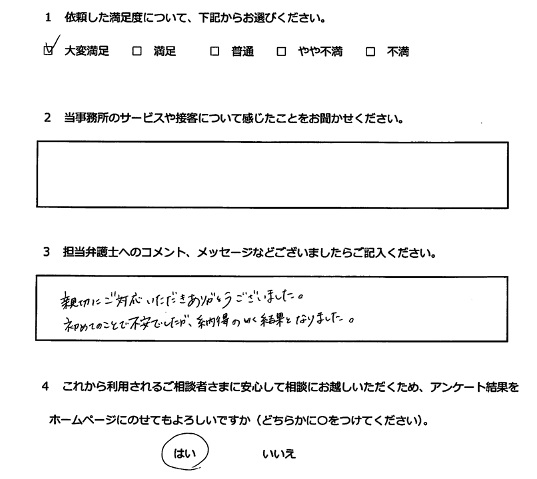 1 依頼した満足度について、下記からお選びください。
☑ 大変満足 □ 満足 □ 普通 □ やや不満 □ 不満
2 当事務所のサービスや接客について感じたことをお聞かせください。
3 担当弁護士へのコメント、メッセージなどございましたらご記入ください。
親切にご対応いただきありがとうございました。
初めてのことで不安でしたが、納得のいく結果となりました。
4 これから利用されるご相談者さまに安心して相談にお越しいただくため、アンケート結果を
ホームページにのせてもよろしいですか（どちらかに〇をつけてください）。
はい いいえ